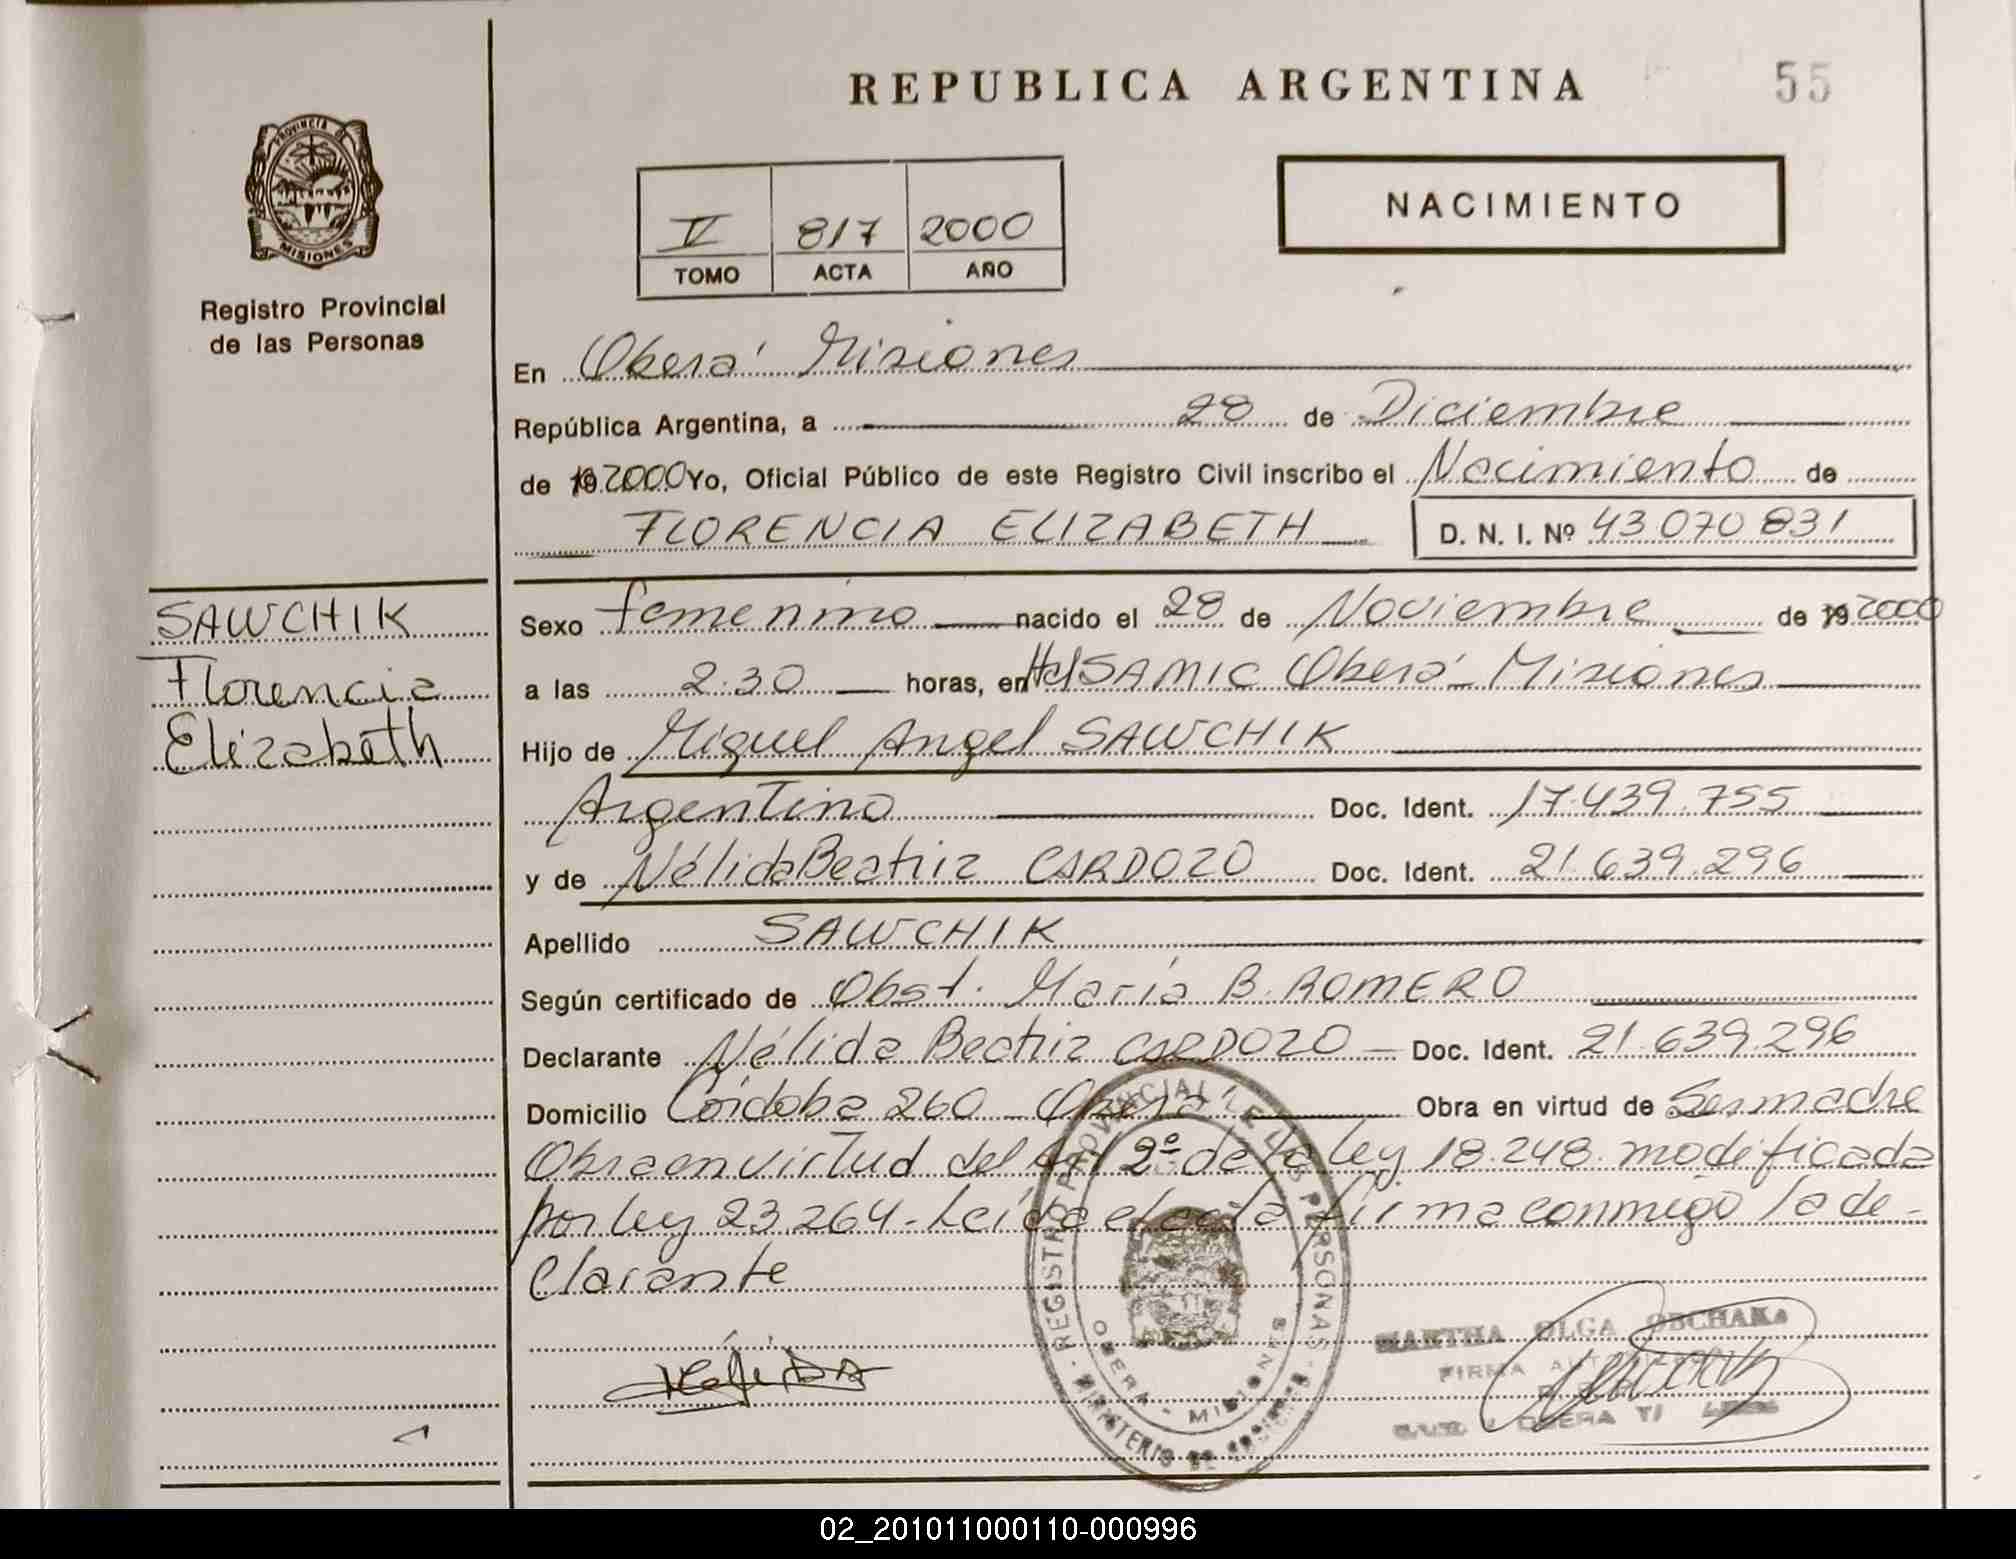 REPUBLICA ARGENTINA
55
PROVINCIA DE MISIONES
Registro Provincial
de las Personas
V 817 2000
TOMO ACTA AÑO
NACIMIENTO
En Oberá Misiones
República Argentina, a 28 de Diciembre
de 19 2000 Yo, Oficial Público de este Registro Civil inscribo el Nacimiento de
FLORENCIA ELIZABETH D. N. I. Nº 43.070.831
SAWCHIK
Florencia
Elizabeth
Sexo femenino nacido el 28 de Noviembre de 19 2000
a las 2.30 horas, en Htal SAMIC Oberá - Misiones
Hijo de Miguel Angel SAWCHIK
Argentino Doc. Ident. 17.439.755
y de Nélida Beatriz CARDOZO Doc. Ident. 21.639.296
Apellido SAWCHIK
Según certificado de Obst. María B. ROMERO
Declarante Nélida Beatriz CARDOZO Doc. Ident. 21.639.296
Domicilio Córdoba 260 - Oberá Obra en virtud de Ser madre
Obra en virtud del Art 2º de la ley 18.248 modificada
por ley 23.264 - Leída el acta firma conmigo la de-
clarante
REGISTRO PROVINCIAL DE LAS PERSONAS
OBERA - MISIONES
MINISTERIO DE
MARTHA OLGA OBCHAKA
FIRMA
OBERA
02_201011000110-000996